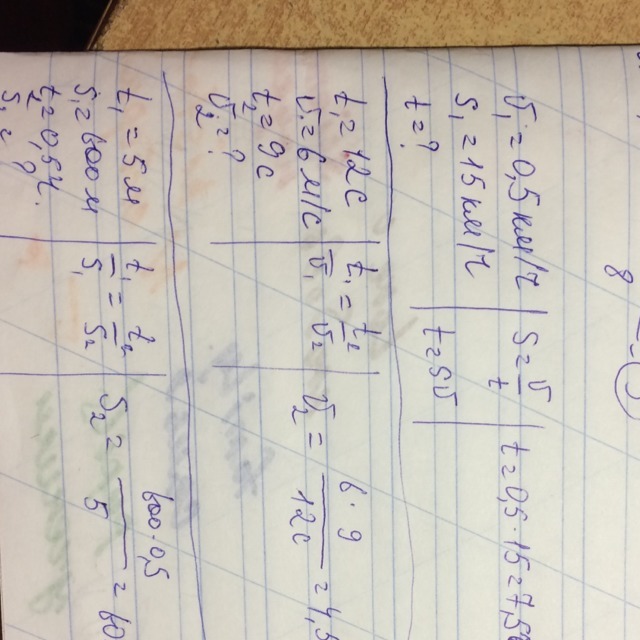 8
υ₁ = 0,5 км/ч | S = υ/t | t = 0,5 · 15 = 7,5
S₁ = 15 км/ч | t = Sυ
t = ?
t₁ = 12c | t₁/υ₁ = t₂/υ₂ | υ₂ = 6 · 9/12c = 4,5
υ₁ = 6 м/с
t₂ = 9c
υ₂ = ?
t₁ = 5 м | t₁/S₁ = t₂/S₂ | S₂ = 600 · 0,5/5 = 60
S₁ = 600 м
t₂ = 0,5 ч.
S₂ = ?